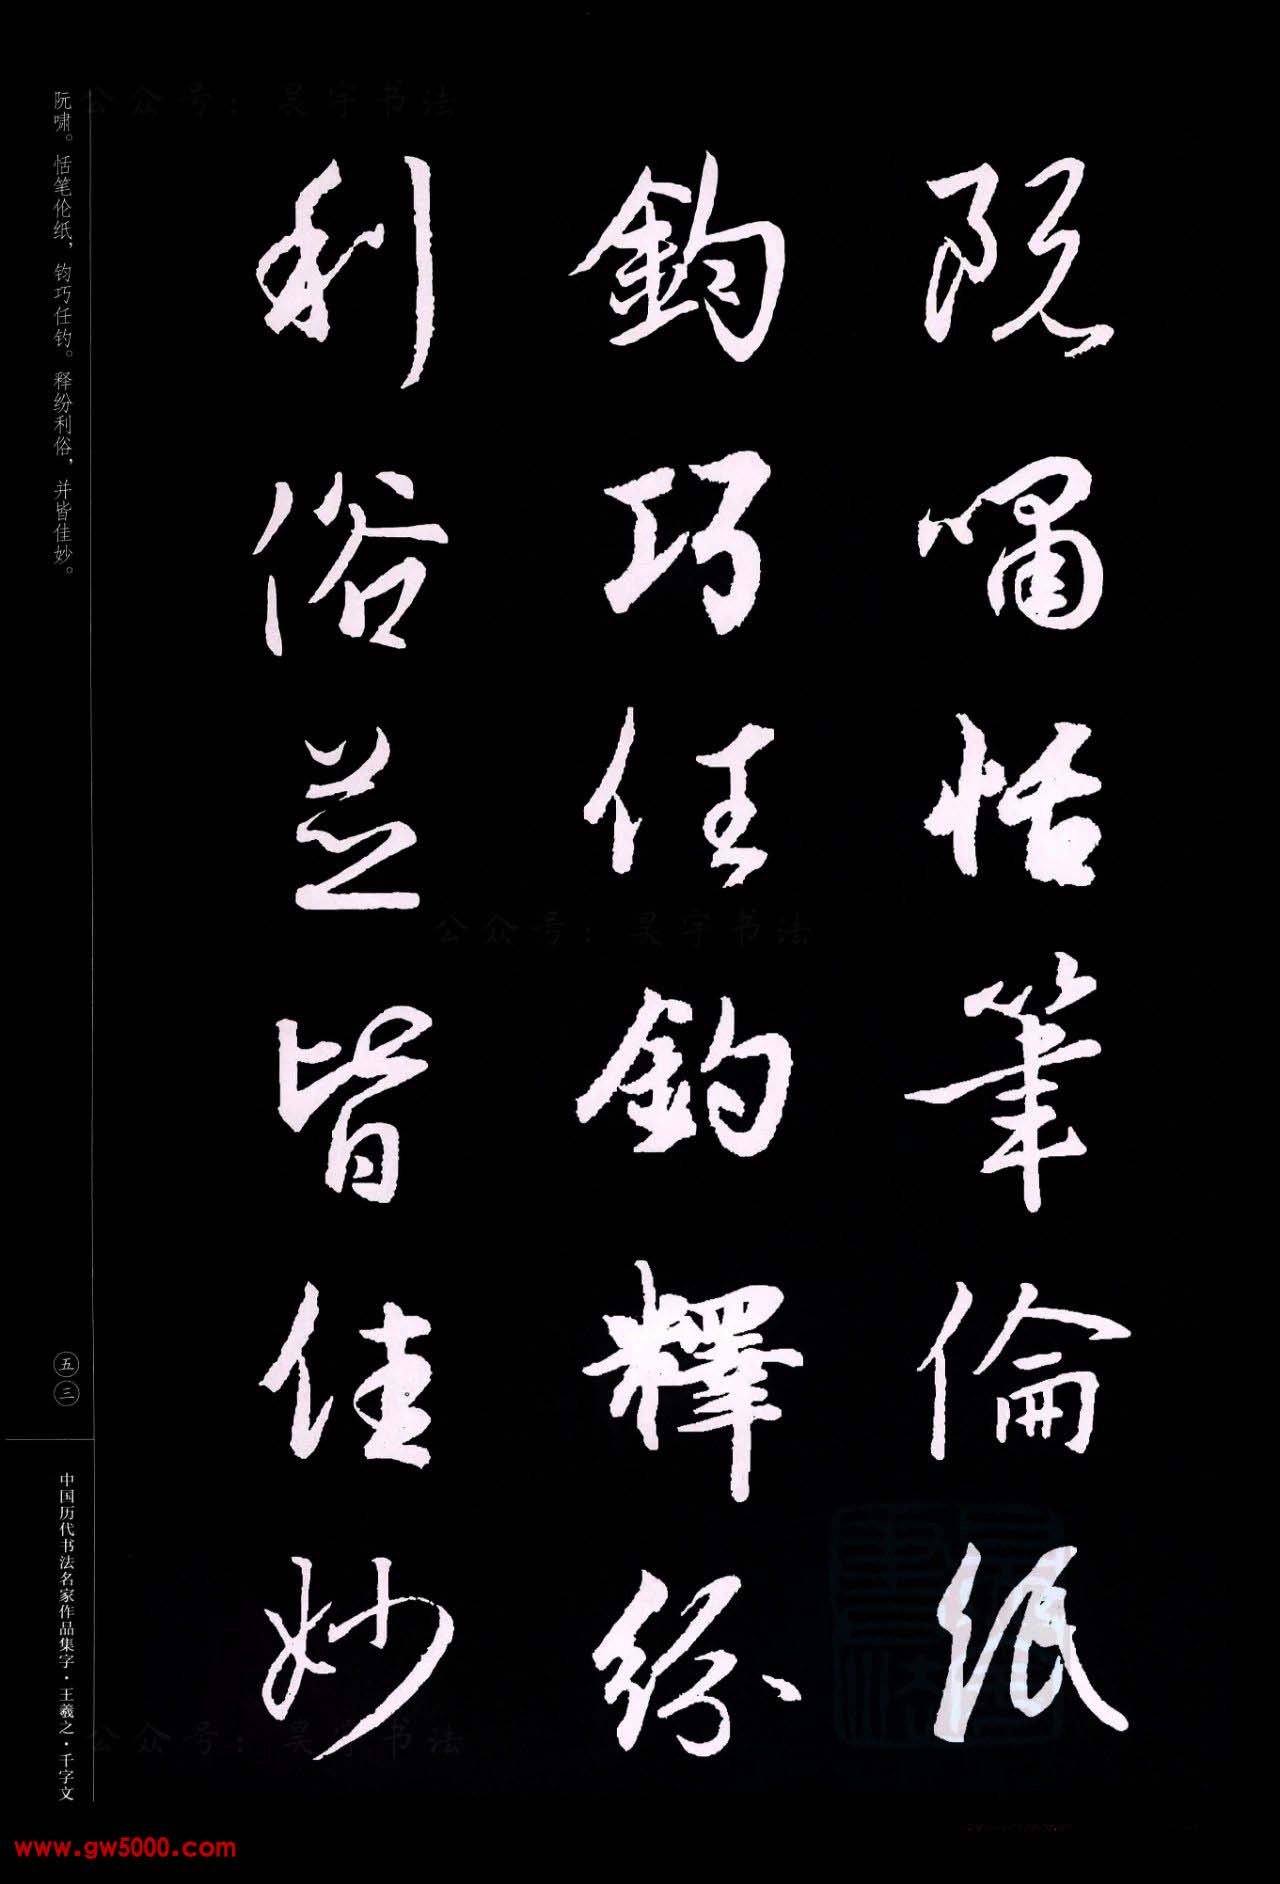 阮嘯恬筆倫紙
鈞巧任釣釋紛
利俗並皆佳妙
阮啸。恬笔伦纸，钧巧任钓。释纷利俗，并皆佳妙。
五三
中国历代书法名家作品集字·王羲之·千字文
公众号：昊宇书法
公众号：昊宇书法
公众号：昊宇书法
www.gw5000.com